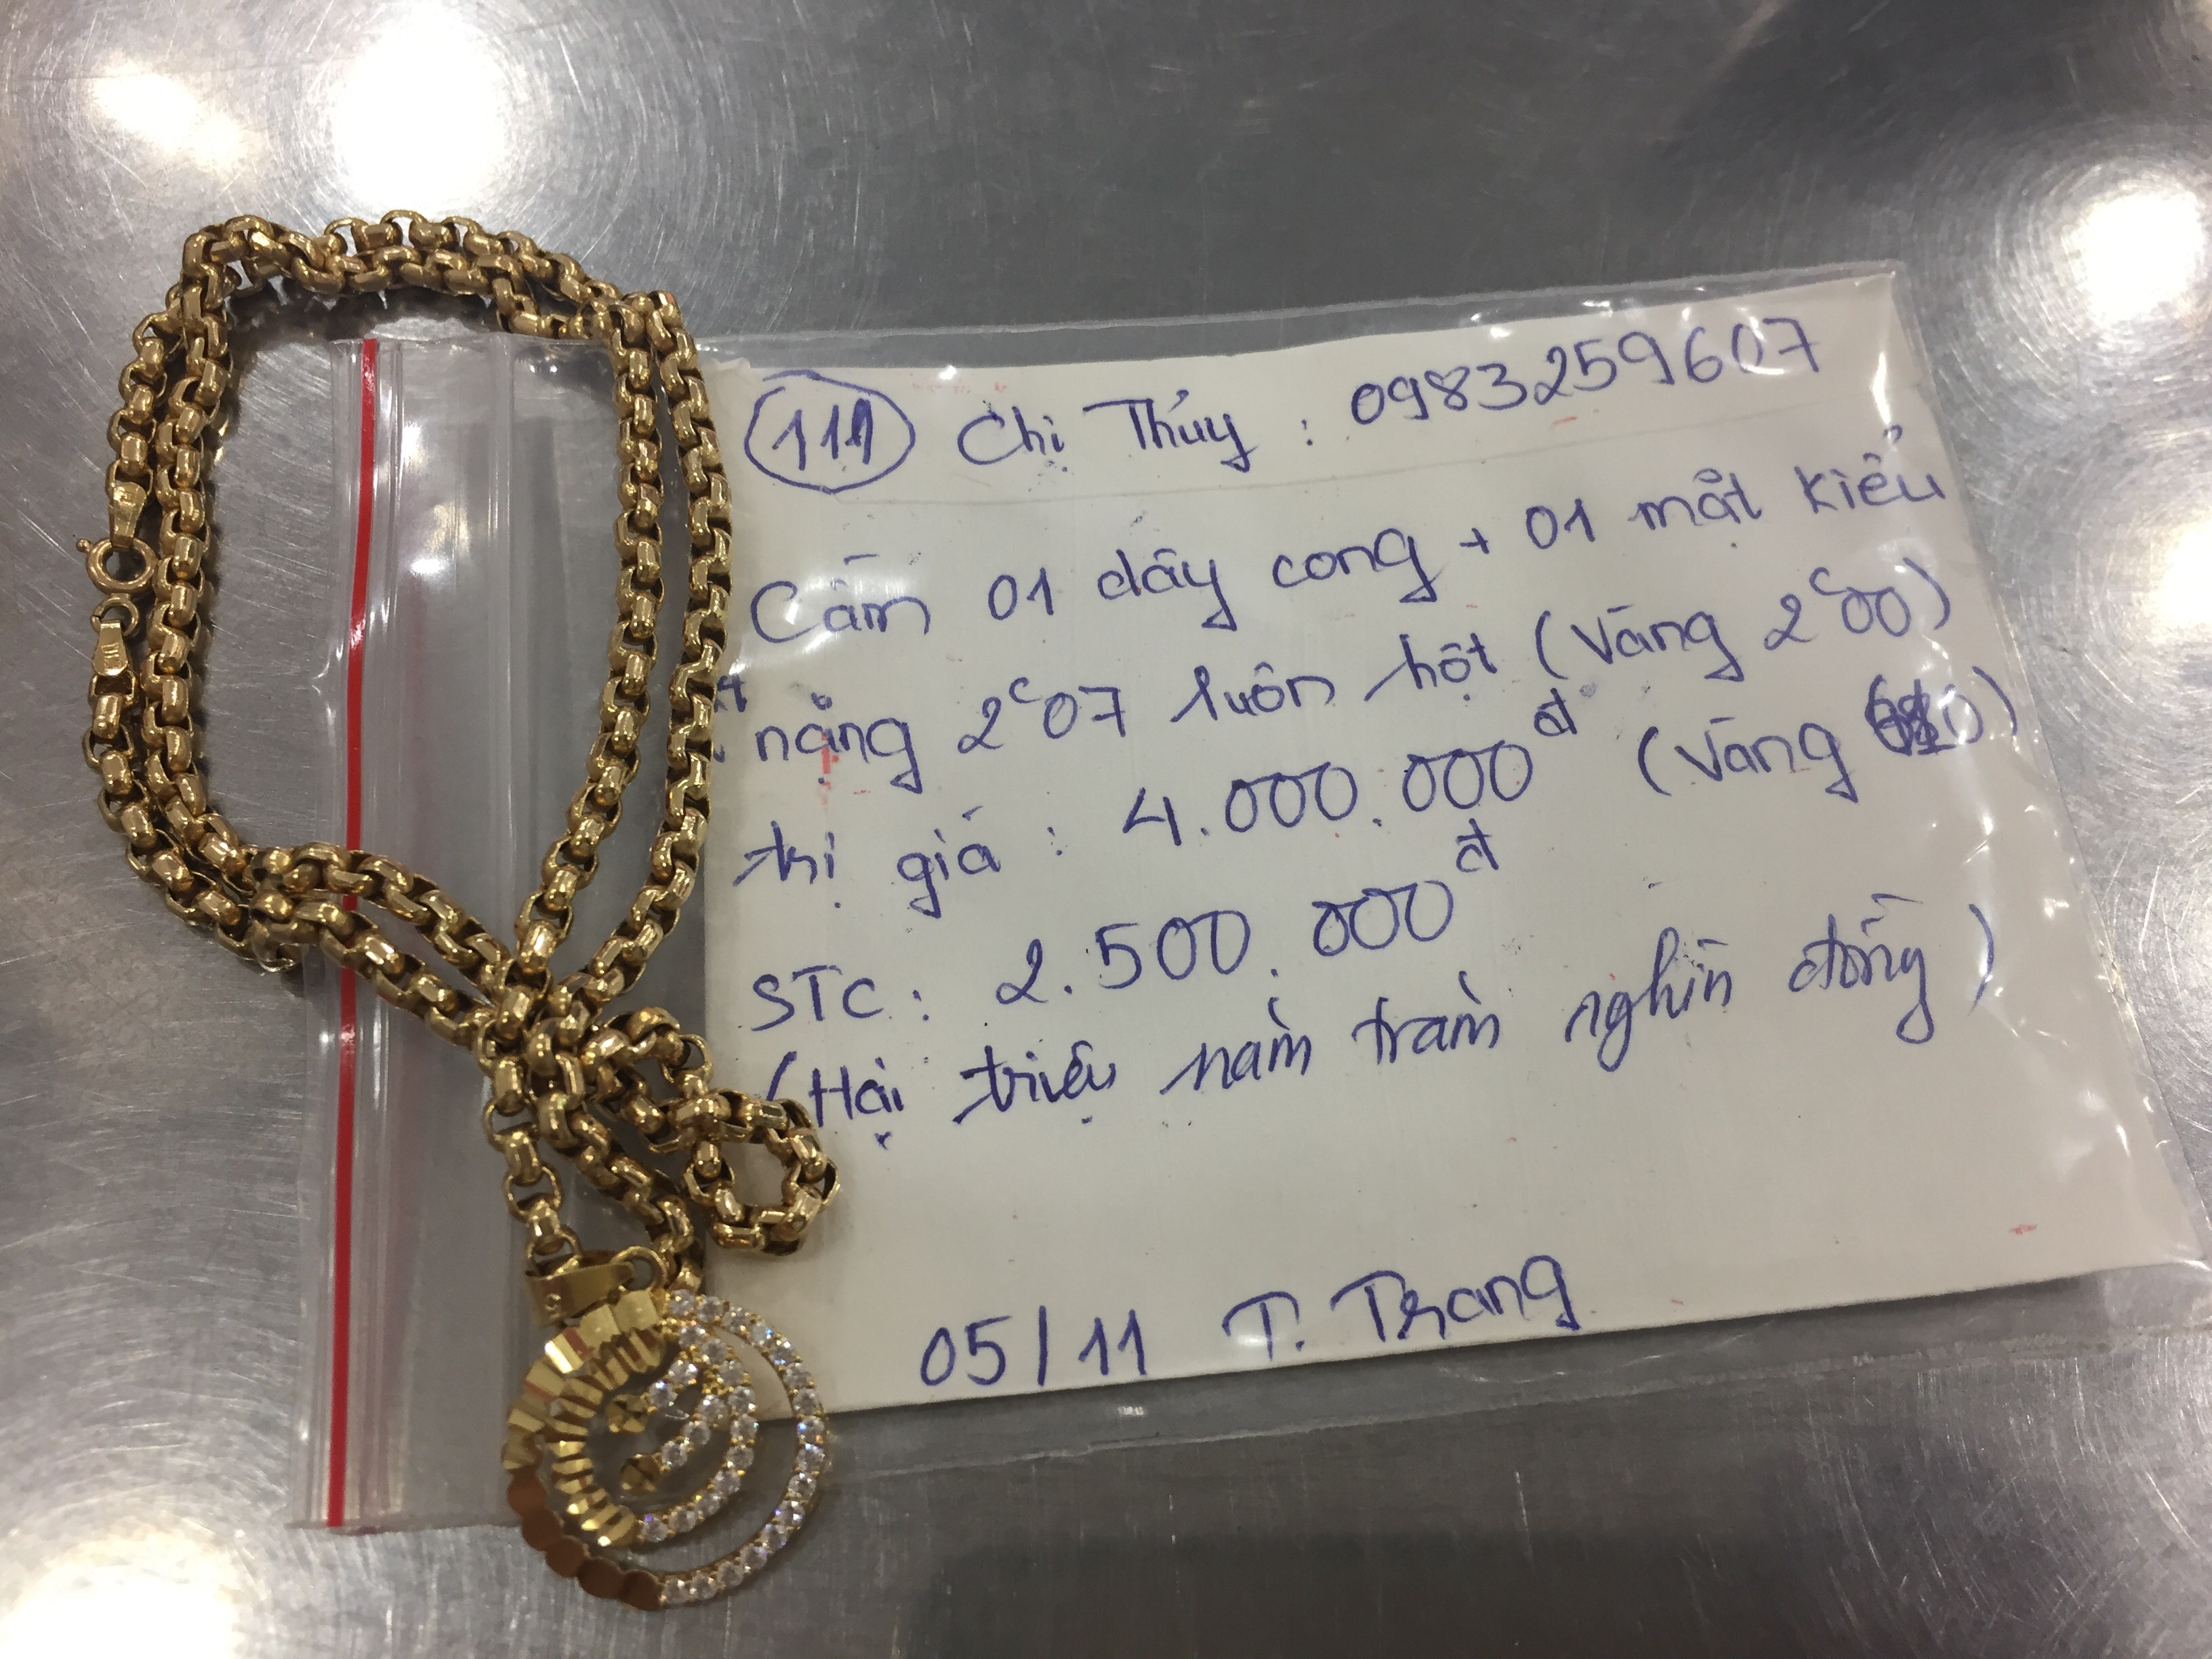 111 Chị Thúy : 0983259607
Cầm 01 dây cong + 01 mặt kiểu
nặng 2c07 luôn hột (Vàng 2c00)
trị giá : 4.000.000đ (Vàng
STC : 2.500.000đ
(Hai triệu năm trăm nghìn đồng)
05/11 T. Trang